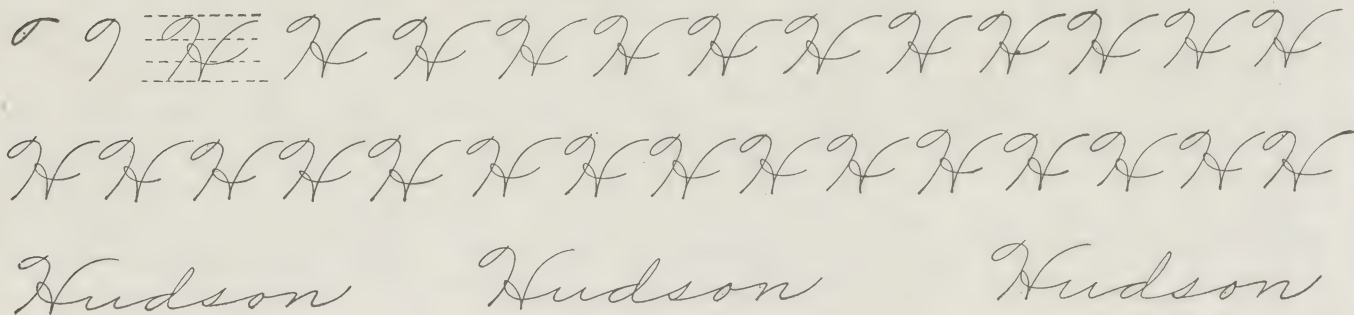 H H H H H H H H H H H H
H H H H H H H H H H H H H H H
Hudson Hudson Hudson